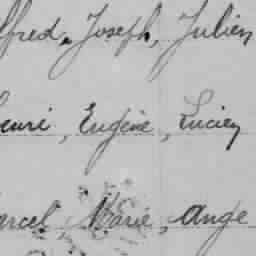 lfred, Joseph, Julien
enri, Eugène, Lucien
arcel, Marie, Ange